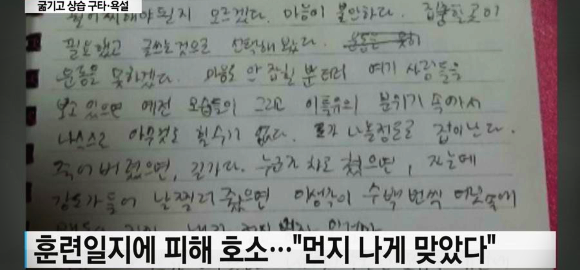 굶기고 상습 구타·욕설
해야될지 모르겠다. 마음이 불안하다. 집중할곳이
필요했고 글쓰는것으로 선택해 보았다.
운동을 못하겠다. 마음도 안 잡힐 뿐더러 여기 사람들을
보고 있으면 예전 모습들이 그려지고 분위기 속에서
나 스스로 아무것도 할수가 없다. 겁이난다.
죽어버렸으면, 누군가 차로 쳤으면, 자는데
강도가 들어 날 찔러 줬으면 이생각이 수백번씩 머릿속에
훈련일지에 피해 호소…"먼지 나게 맞았다"